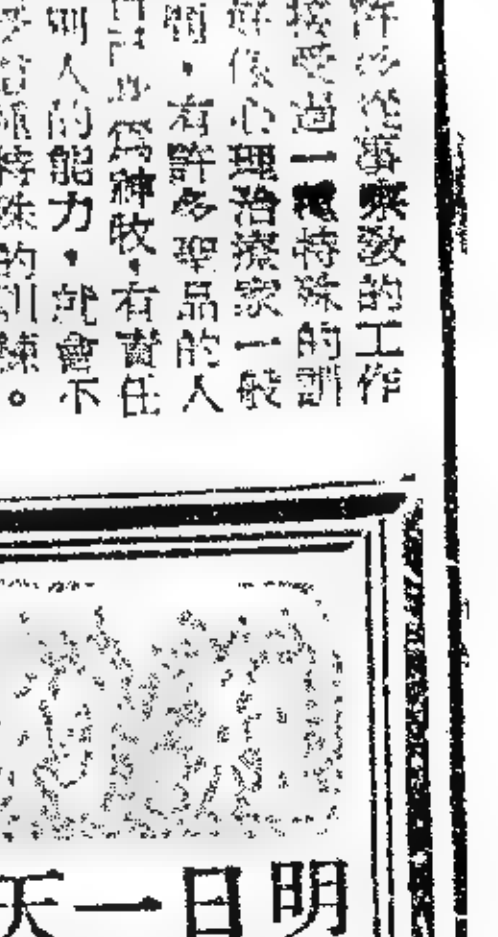 許多從事宗教的工作
接受過一種特殊的訓
好像心理治療家一般
有許多聖品的人
為神牧，有責任
別人的能力，就會不
特殊的訓練。
明日一天